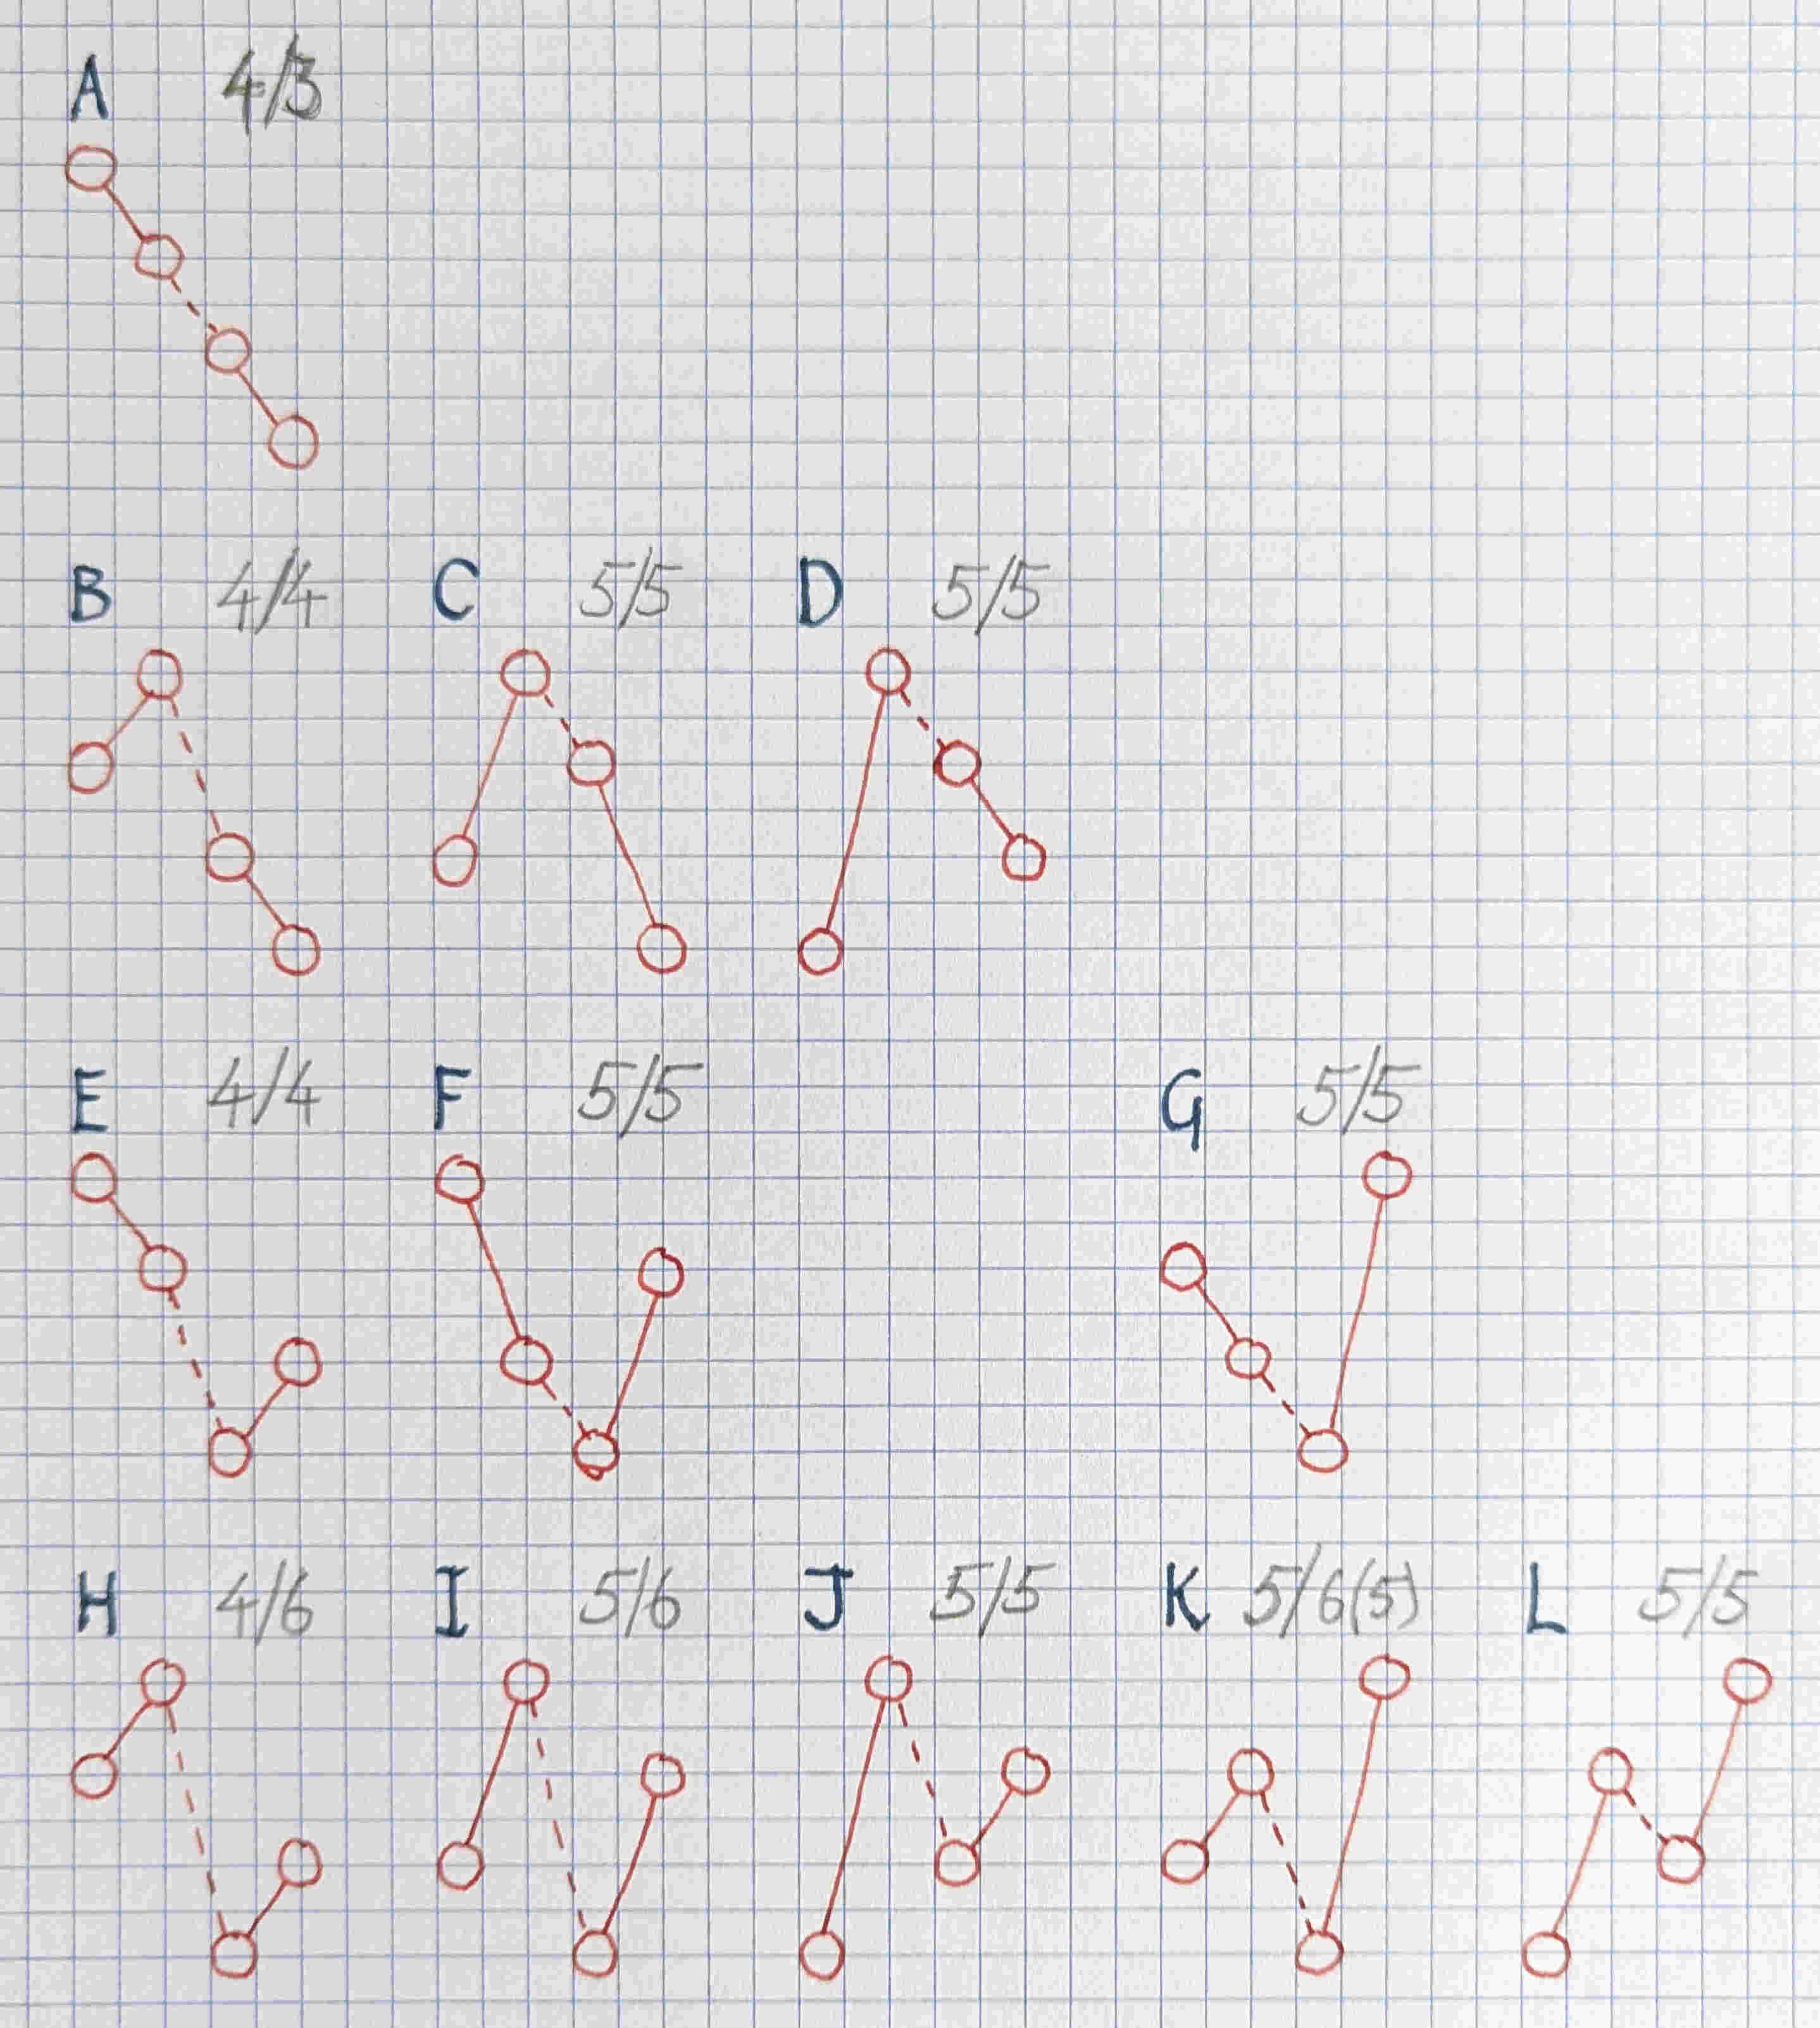 A 4/3
B 4/4 C 5/5 D 5/5
E 4/4 F 5/5 G 5/5
H 4/6 I 5/6 J 5/5 K 5/6(5) L 5/5